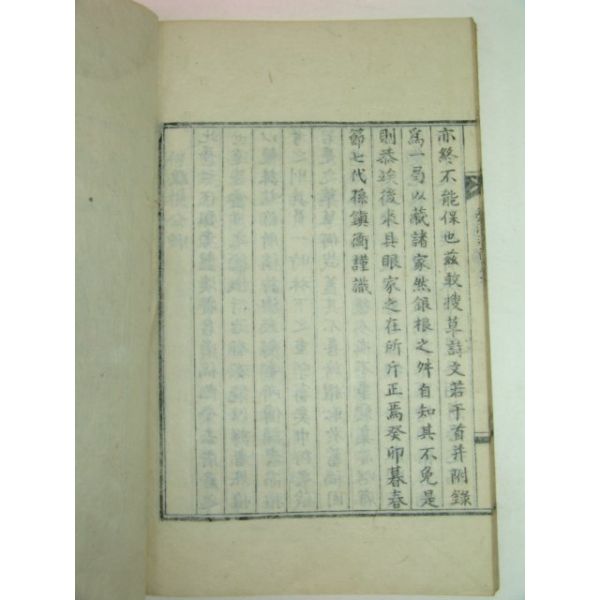 亦終不能保也玆敢搜草詩文若干首幷附錄
爲一局以藏諸家然銀根之舛自知其不免是
則恭竢後來具眼家之在所斥正焉癸卯暮春
節七代孫鎭衡謹識